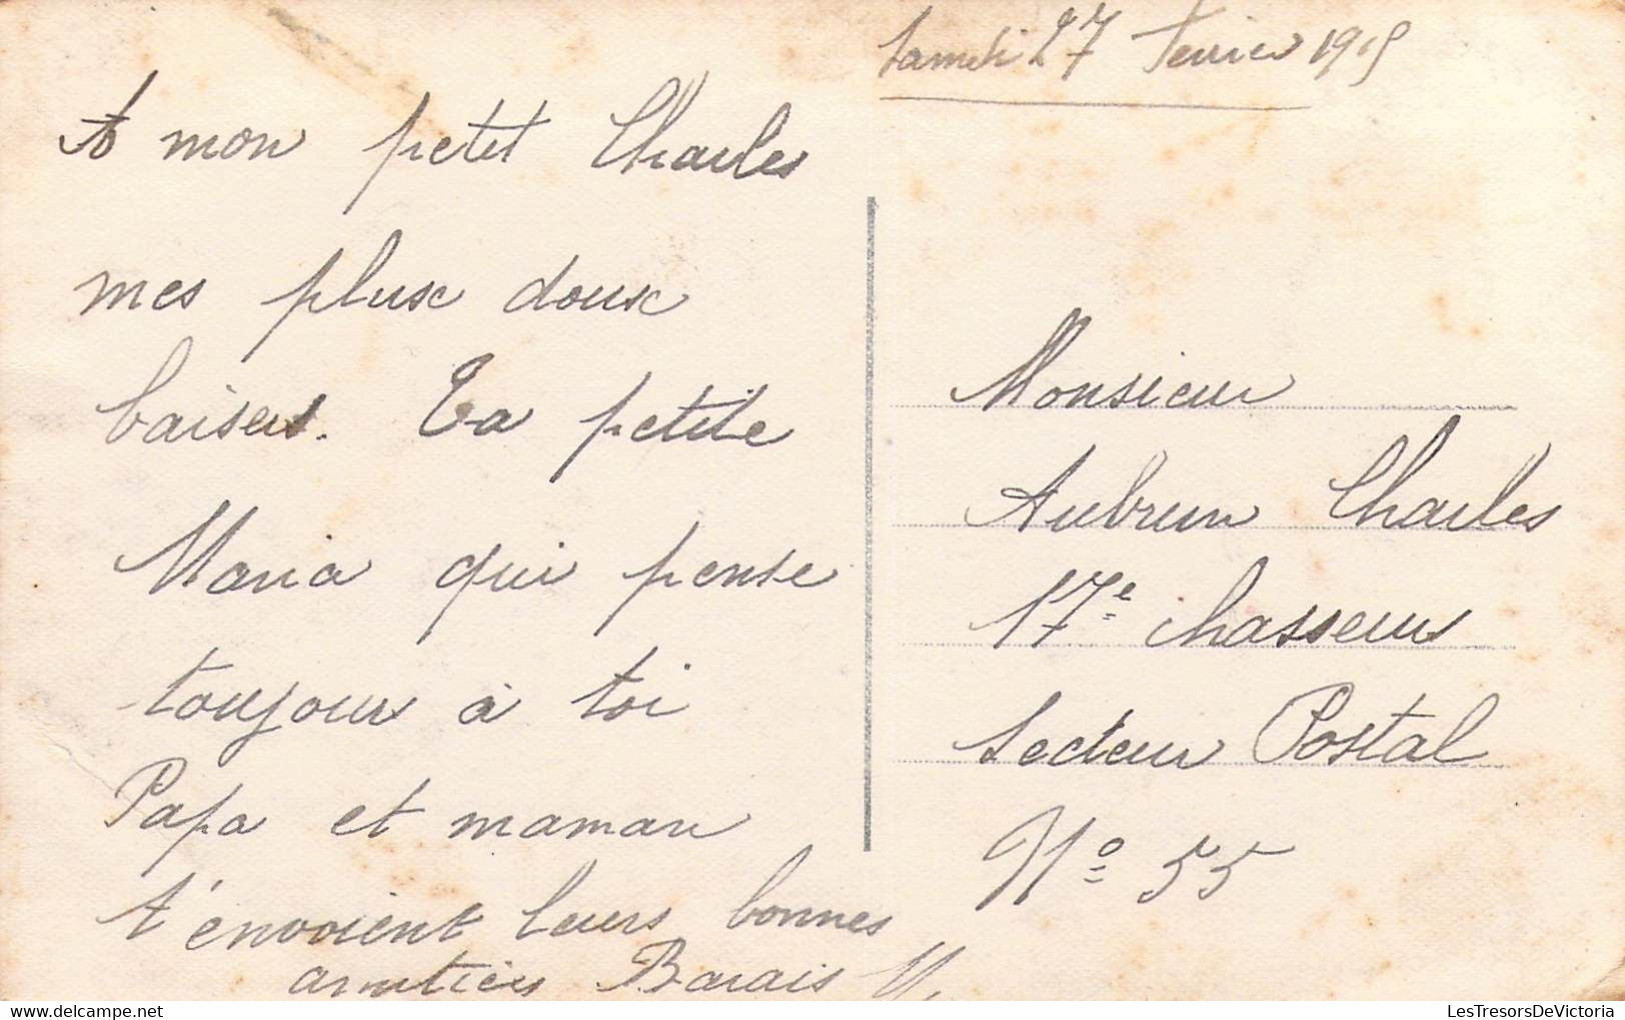 Samedi 27 Fevrier 1915
A mon petit Charles
mes plus doux
baisers. Ta petite
Maria qui pense
toujours à toi
Papa et maman
t'envoient leurs bonnes
amitiés Barais M.
Monsieur
Aubrun Charles
17e chasseurs
Secteur Postal
No 55
LesTresorsDeVictoria